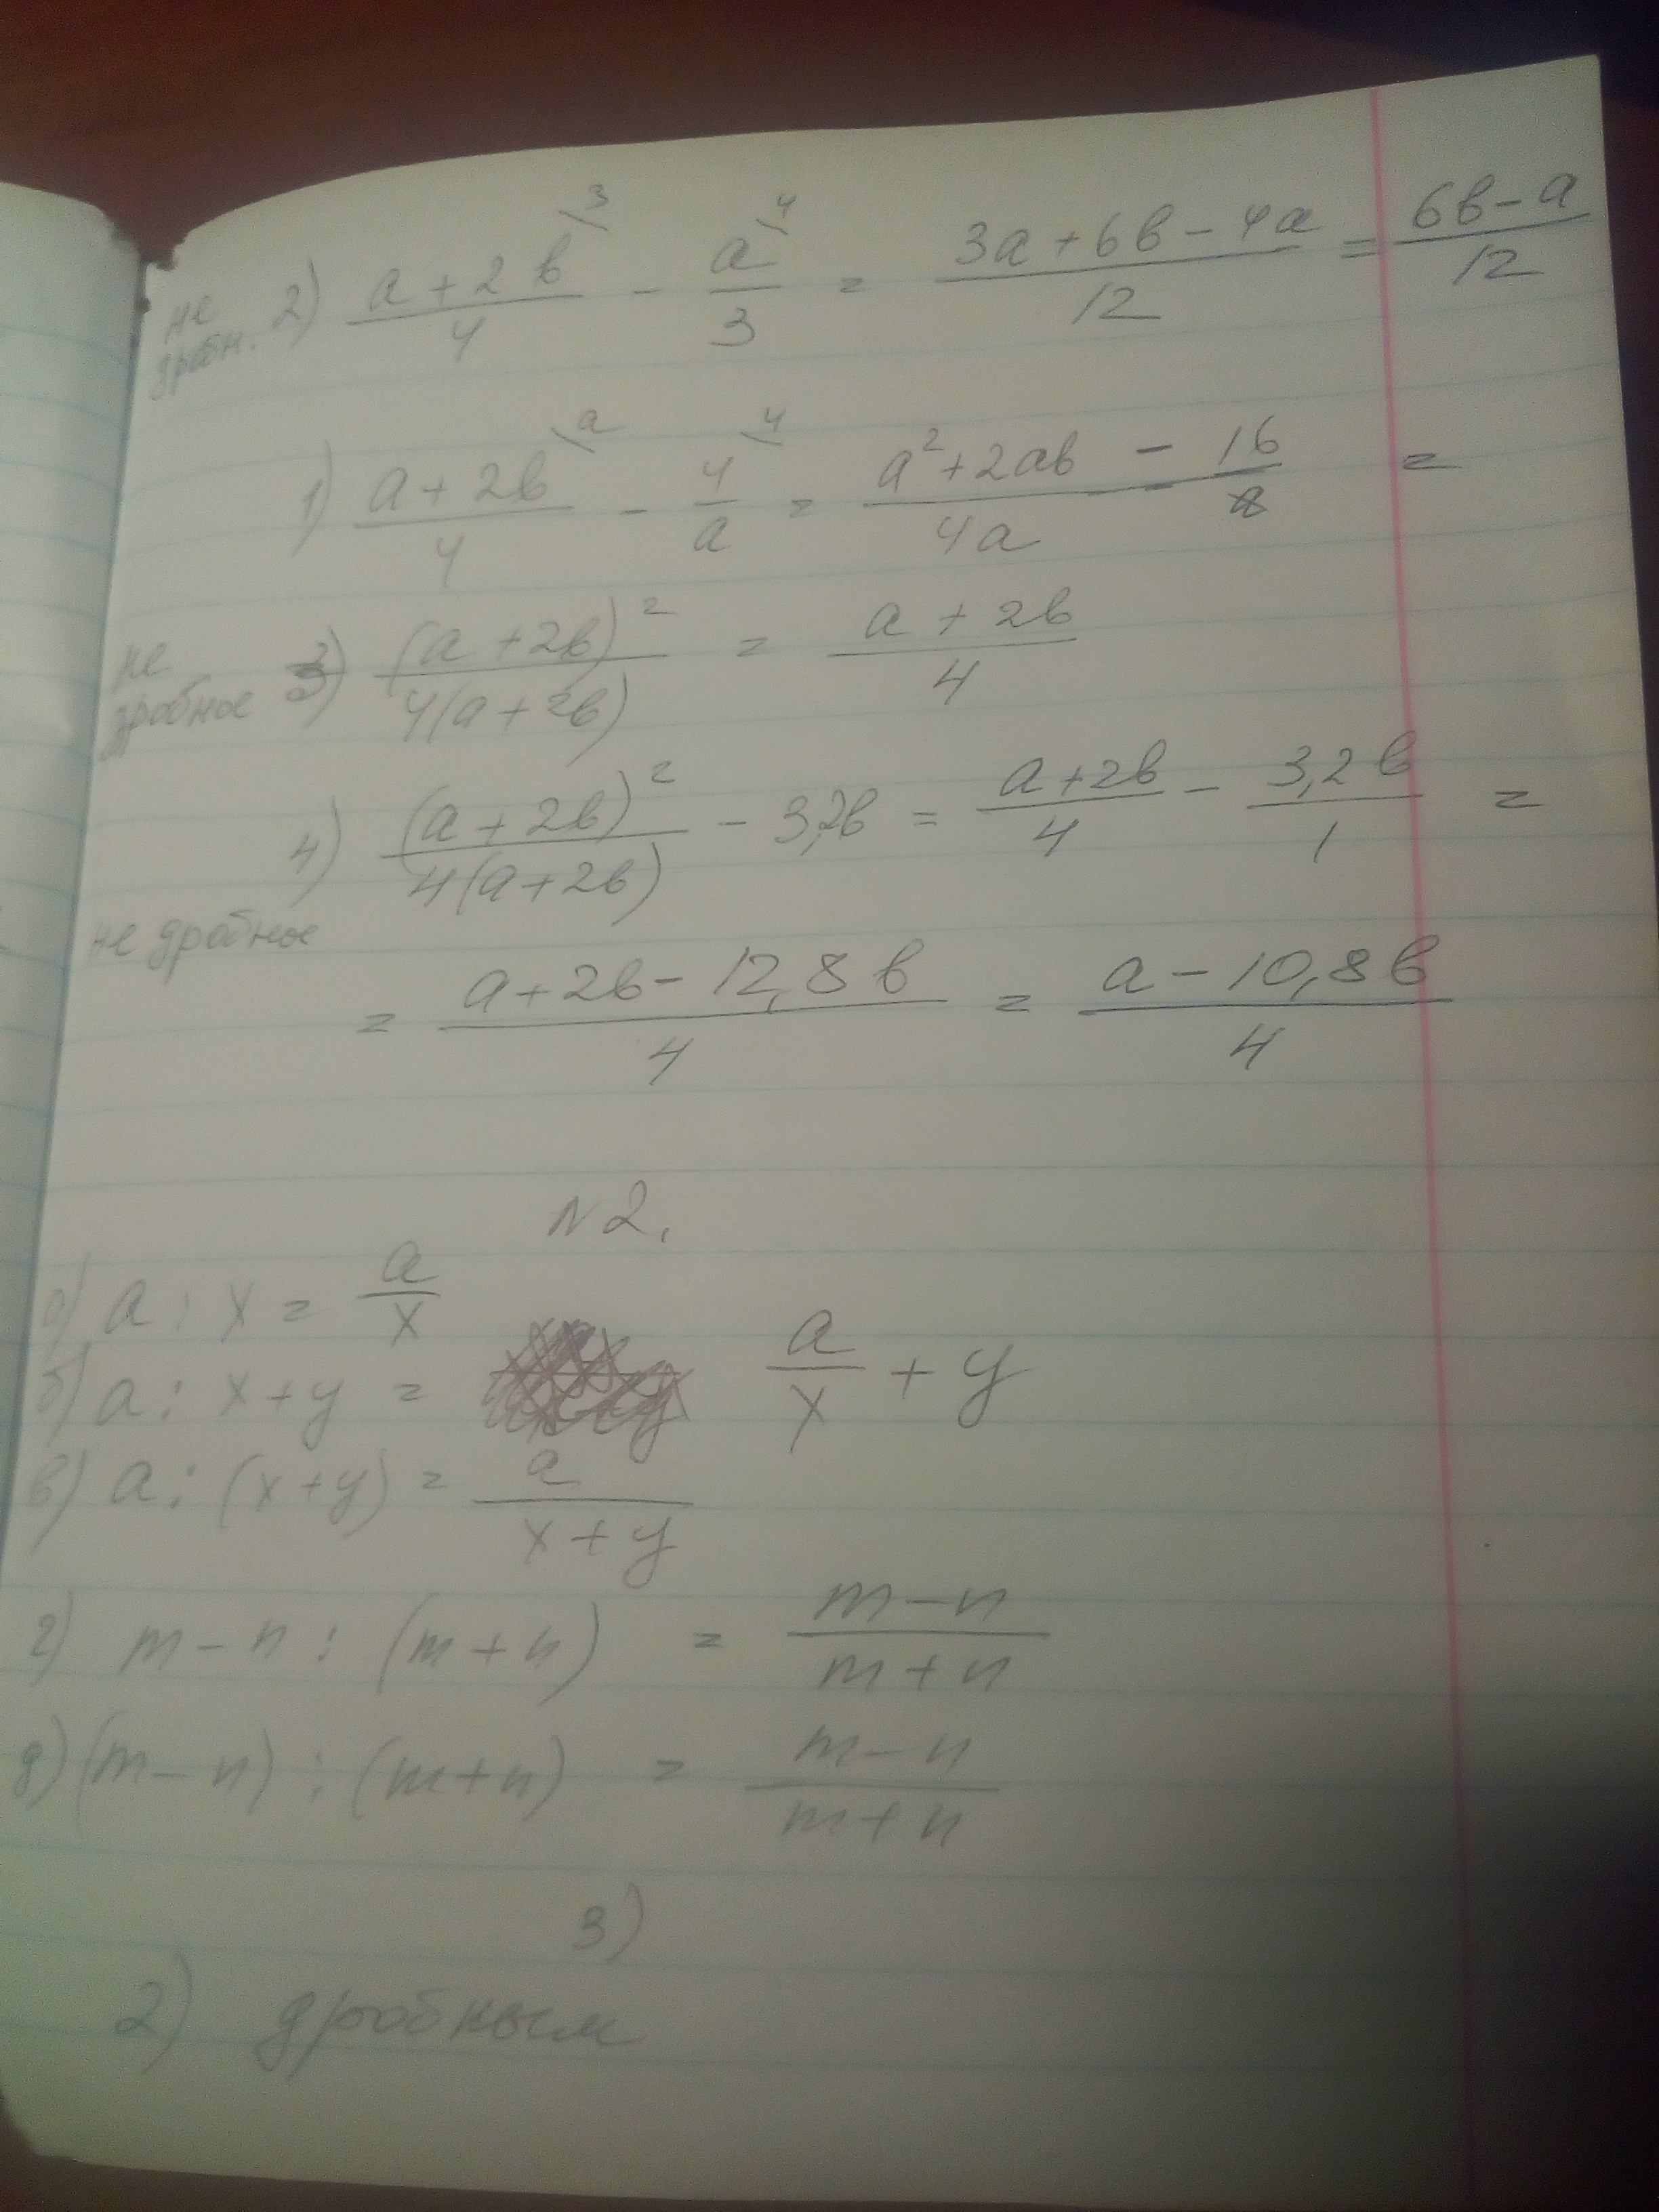 не дробн. 2) (a+2b)/4 \3 - a/3 \4 = (3a+6b-4a)/12 = (6b-a)/12
1) (a+2b)/4 \a - 4/a \4 = (a²+2ab - 16)/4a =
не дробное 3) (a+2b)²/4(a+2b) = (a+2b)/4
4) (a+2b)²/4(a+2b) - 3,2b = (a+2b)/4 - 3,2b/1 =
не дробное
= (a+2b-12,8b)/4 = (a-10,8b)/4
N2.
а) a : x = a/x
б) a : x+y = a/x + y
в) a : (x+y) = a/(x+y)
г) m-n : (m+n) = (m-n)/(m+n)
д) (m-n) : (m+n) = (m-n)/(m+n)
3)
2) дробным